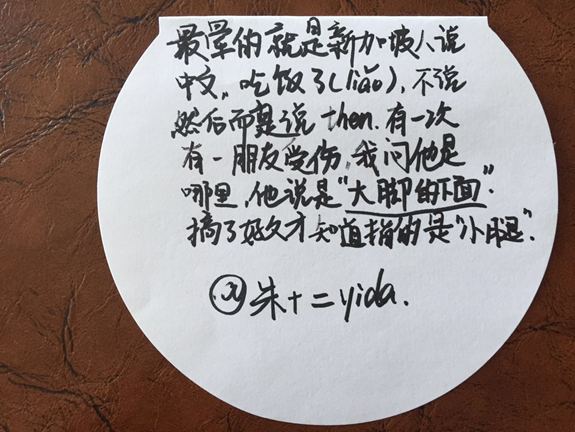 最晕的就是新加坡人说
中文。吃饭了(liǎo), 不说
然后而是说 then. 有一次
有一朋友受伤, 我问他是
哪里, 他说是“大脚的下面”.
搞了好久才知道指的是“小腿”.
朱十二yida.